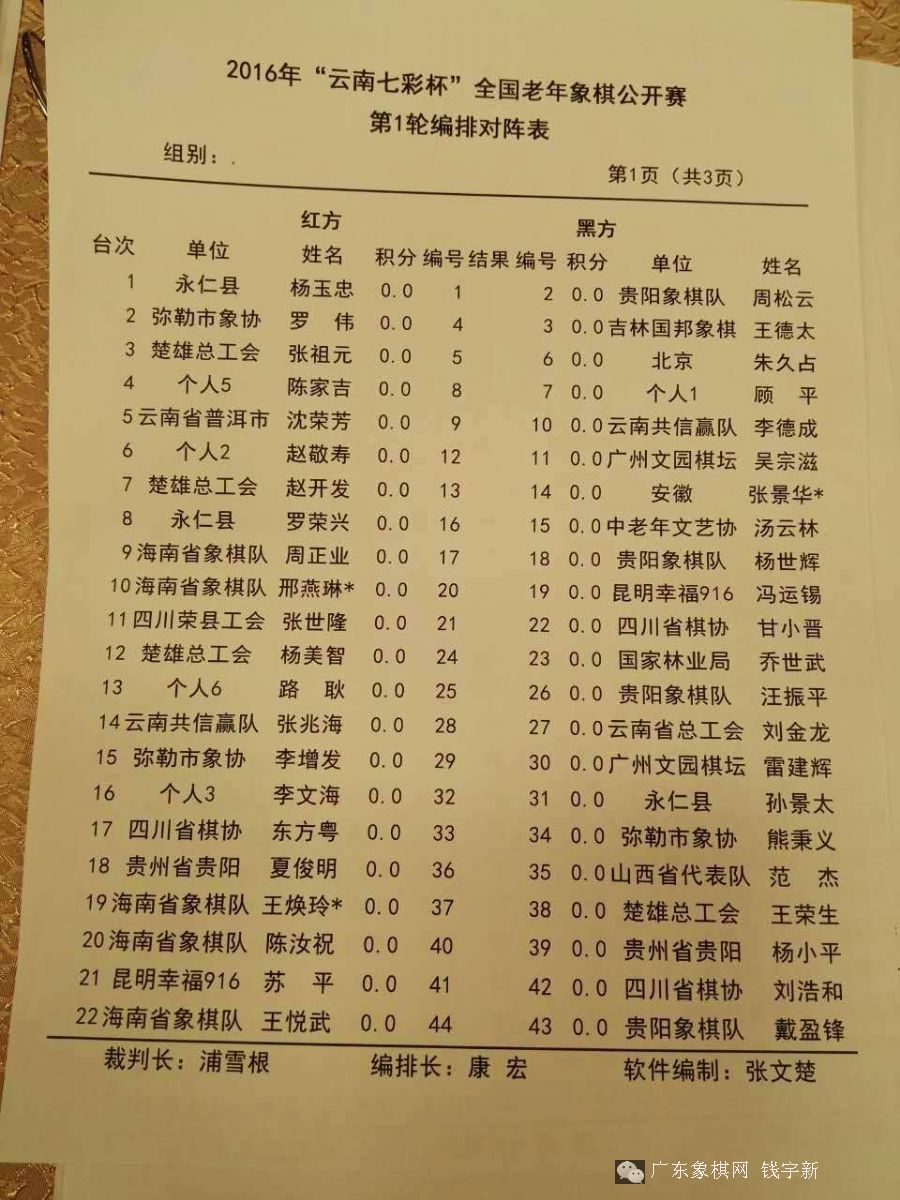 2016年“云南七彩杯”全国老年象棋公开赛
第1轮编排对阵表
组别：.
第1页（共3页）
红方 黑方
台次 单位 姓名 积分 编号 结果 编号 积分 单位 姓名
1 永仁县 杨玉忠 0.0 1 2 0.0 贵阳象棋队 周松云
2 弥勒市象协 罗 伟 0.0 4 3 0.0 吉林国邦象棋 王德太
3 楚雄总工会 张祖元 0.0 5 6 0.0 北京 朱久占
4 个人5 陈家吉 0.0 8 7 0.0 个人1 顾 平
5 云南省普洱市 沈荣芳 0.0 9 10 0.0 云南共信赢队 李德成
6 个人2 赵敬寿 0.0 12 11 0.0 广州文园棋坛 吴宗滋
7 楚雄总工会 赵开发 0.0 13 14 0.0 安徽 张景华*
8 永仁县 罗荣兴 0.0 16 15 0.0 中老年文艺协 汤云林
9 海南省象棋队 周正业 0.0 17 18 0.0 贵阳象棋队 杨世辉
10 海南省象棋队 邢燕琳* 0.0 20 19 0.0 昆明幸福916 冯运锡
11 四川荣县工会 张世隆 0.0 21 22 0.0 四川省棋协 甘小晋
12 楚雄总工会 杨美智 0.0 24 23 0.0 国家林业局 乔世武
13 个人6 路 耿 0.0 25 26 0.0 贵阳象棋队 汪振平
14 云南共信赢队 张兆海 0.0 28 27 0.0 云南省总工会 刘金龙
15 弥勒市象协 李增发 0.0 29 30 0.0 广州文园棋坛 雷建辉
16 个人3 李文海 0.0 32 31 0.0 永仁县 孙景太
17 四川省棋协 东方粤 0.0 33 34 0.0 弥勒市象协 熊秉义
18 贵州省贵阳 夏俊明 0.0 36 35 0.0 山西省代表队 范 杰
19 海南省象棋队 王焕玲* 0.0 37 38 0.0 楚雄总工会 王荣生
20 海南省象棋队 陈汝祝 0.0 40 39 0.0 贵州省贵阳 杨小平
21 昆明幸福916 苏 平 0.0 41 42 0.0 四川省棋协 刘浩和
22 海南省象棋队 王悦武 0.0 44 43 0.0 贵阳象棋队 戴盈锋
裁判长：浦雪根 编排长：康 宏 软件编制：张文楚
广东象棋网 钱宇新